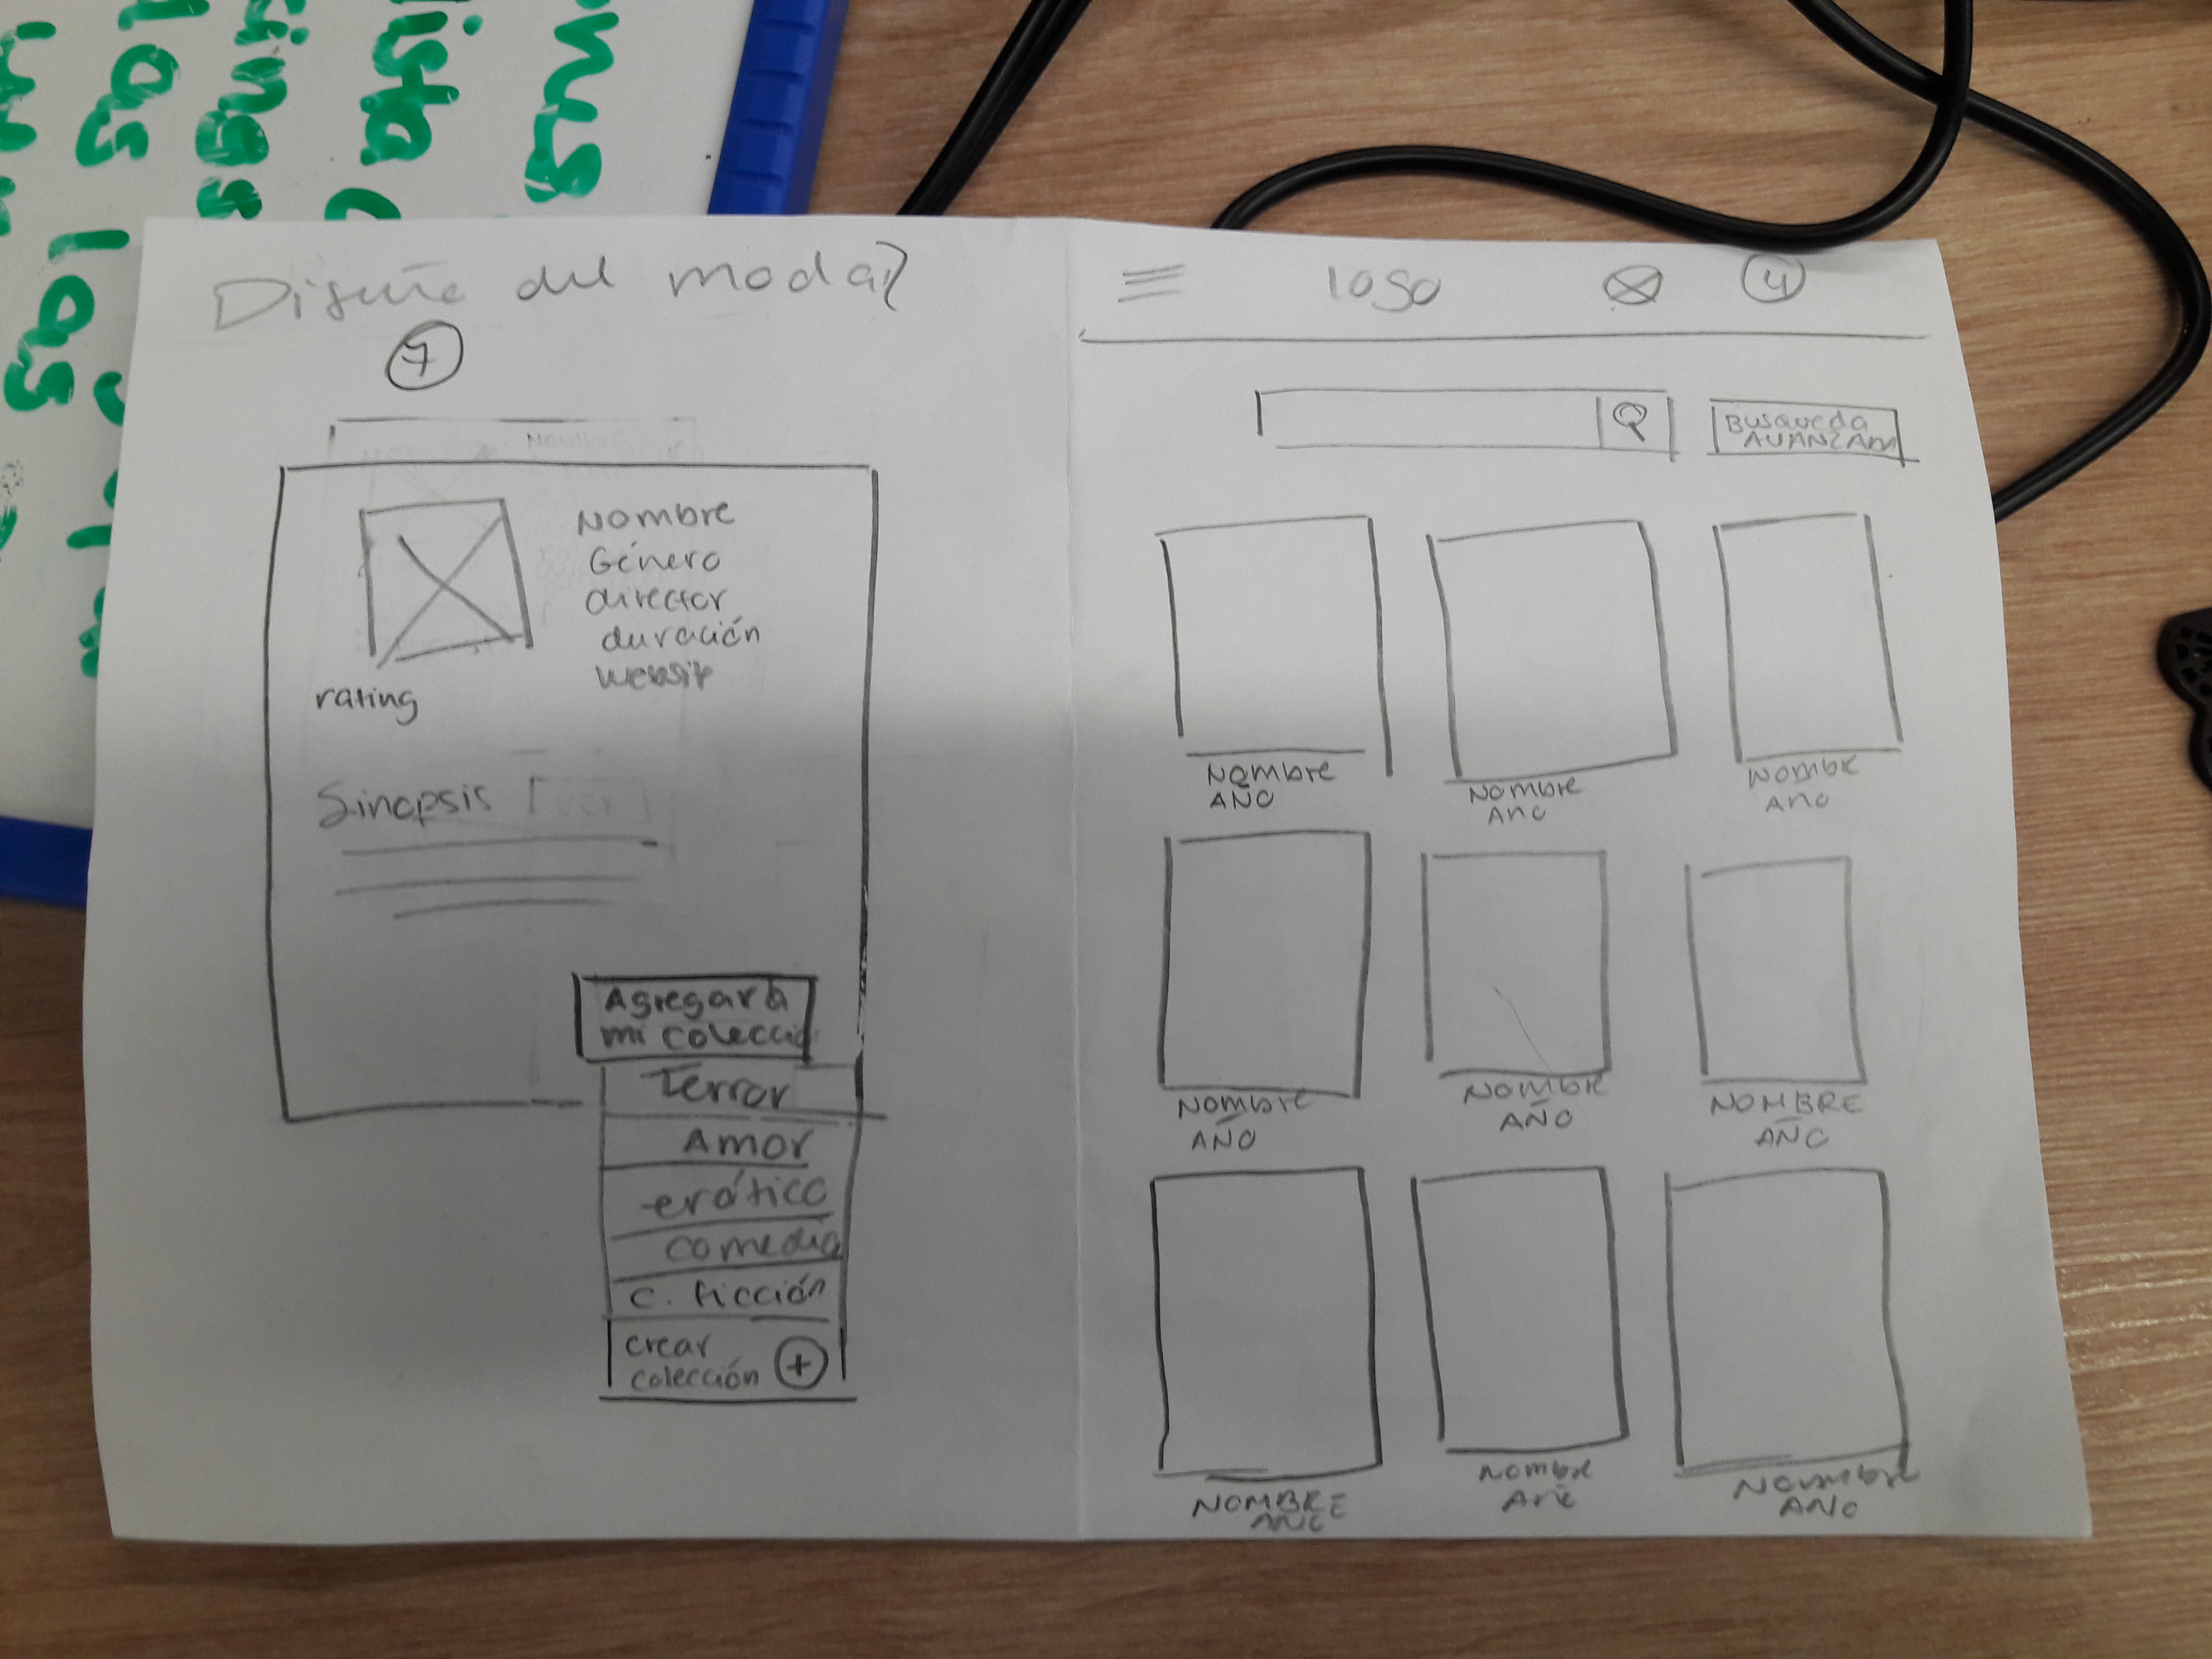 Diseño del modal
7
Nombre
Género
director
duración
website
rating
Sinopsis
Agregar a
mi colecció
Terror
Amor
erótico
comedia
c. ficción
crear
colección +
logo
4
Busqueda
AVANZADA
Nombre
ANO
Nombre
Ano
Nombre
Ano
Nombre
ANO
NOMbre
ANO
NOMBRE
ANO
NOMBRE
ANO
nombre
Año
Nombre
ANO
las
las
ings
ista